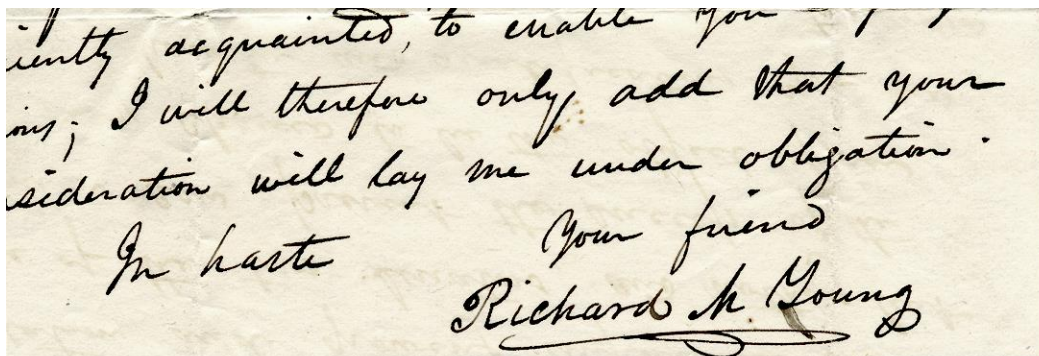 iently acquainted, to enable you
ons; I will therefore only add that your
sideration will lay me under obligation.
In haste Your friend
Richard M. Young